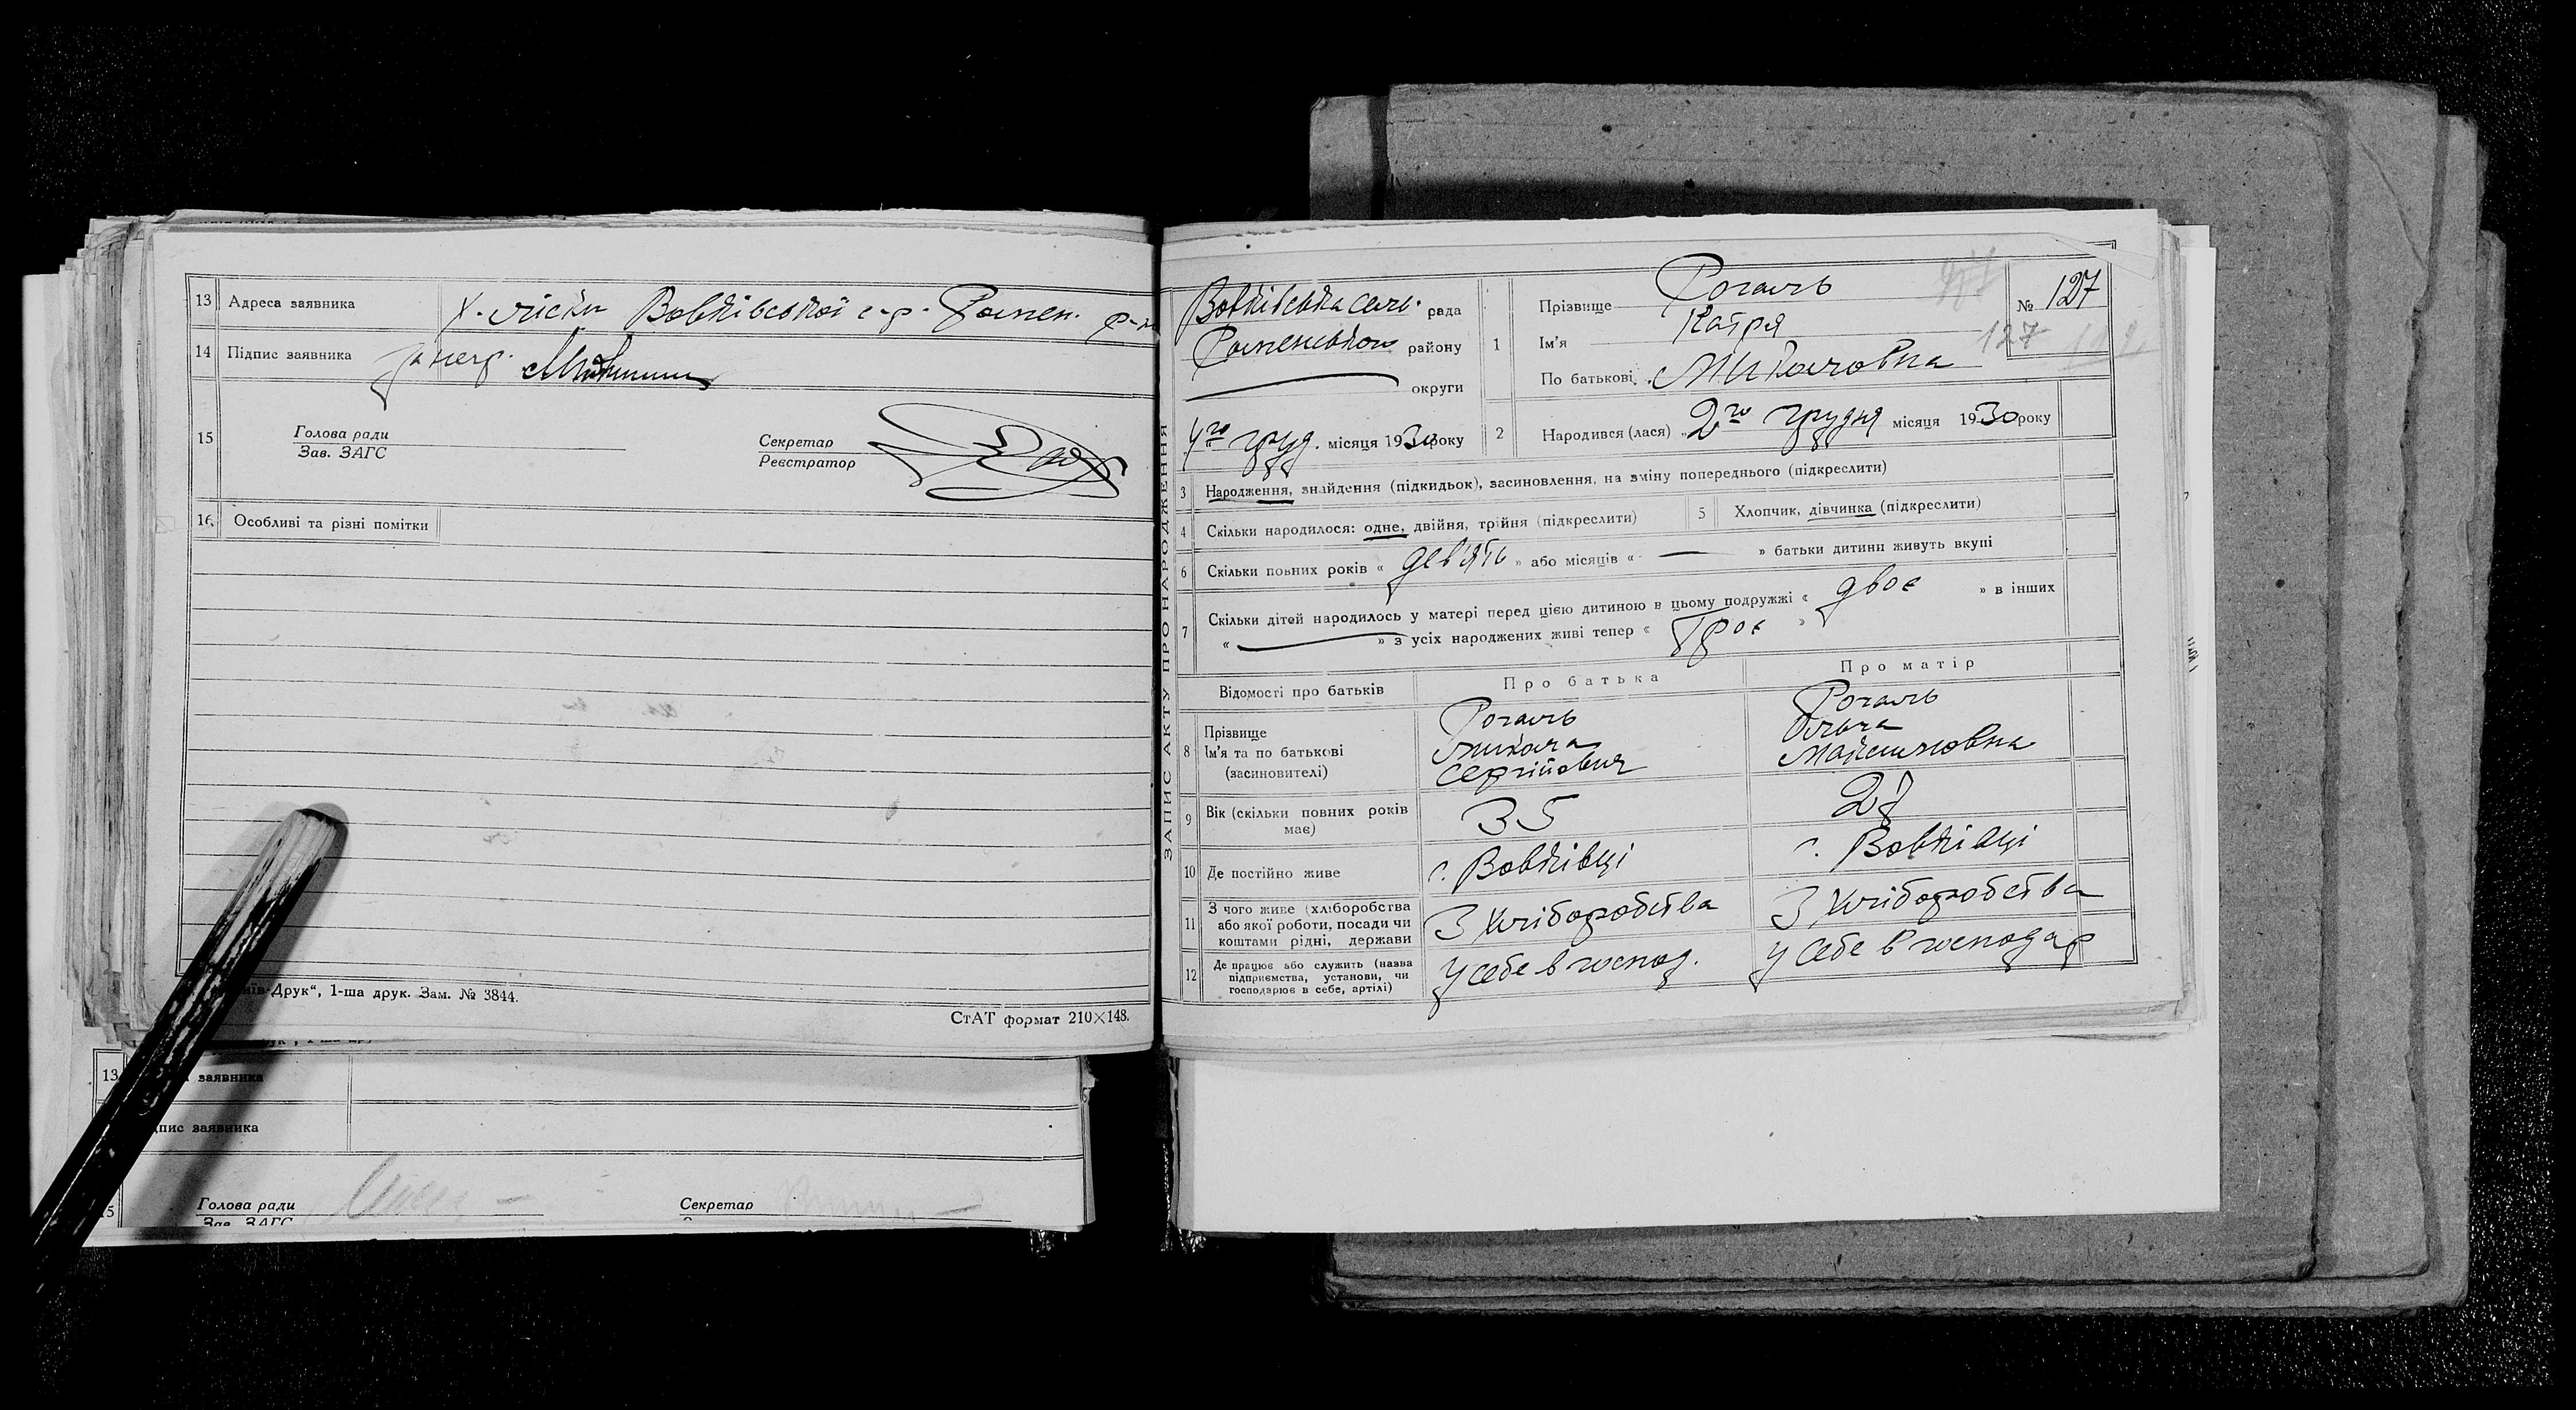 13 Адреса заявника Х. Ліски Вовківської с-р. Ромен. р-н
14 Підпис заявника за негр.
15 Голова ради
Зав. ЗАГС
Секретар
Реєстратор
16. Особливі та різні помітки
Друк“, 1-ша друк. Зам. № 3844.
СтАТ формат 210×148.
13 заявника
заявника
Голова ради
Зав. ЗАГС
Секретар
ЗАПИС АКТУ ПРО НАРОДЖЕННЯ
Вовківська сель. рада
Роменського району
округи
4го груд. місяця 1930 року
1 Прізвище Рогаль
Ім'я Катря
По батькові Миколовна
№ 127
127
2 Народився (лася) „2го грудня місяця 1930 року
3 Народження, знайдення (підкидьок), засиновлення, на зміну попереднього (підкреслити)
4 Скільки народилося: одне, двійня, трійня (підкреслити) 5 Хлопчик, дівчинка (підкреслити)
6 Скільки повних років « девять » або місяців « — » батьки дитини живуть вкупі
7 Скільки дітей народилось у матері перед цією дитиною в цьому подружжі « двоє » в інших
« — » з усіх народжених живі тепер « Троє »
Відомості про батьків Про батька Про матір
8 Прізвище
Ім'я та по батькові
(засиновителі)
Рогаль
Микола
Сергійович
Рогаль
Ольга
Максимовна
9 Вік (скільки повних років
має)
35
28
10 Де постійно живе с. Вовківці с. Вовківці
11 З чого живе (хліборобства
або якої роботи, посади чи
коштами рідні, держави
З Хліборобства
З Хліборобства
12 Де працює або служить (назва
підприємства, установи, чи
господарює в себе, артілі)
У себе в господ.
У себе в господар